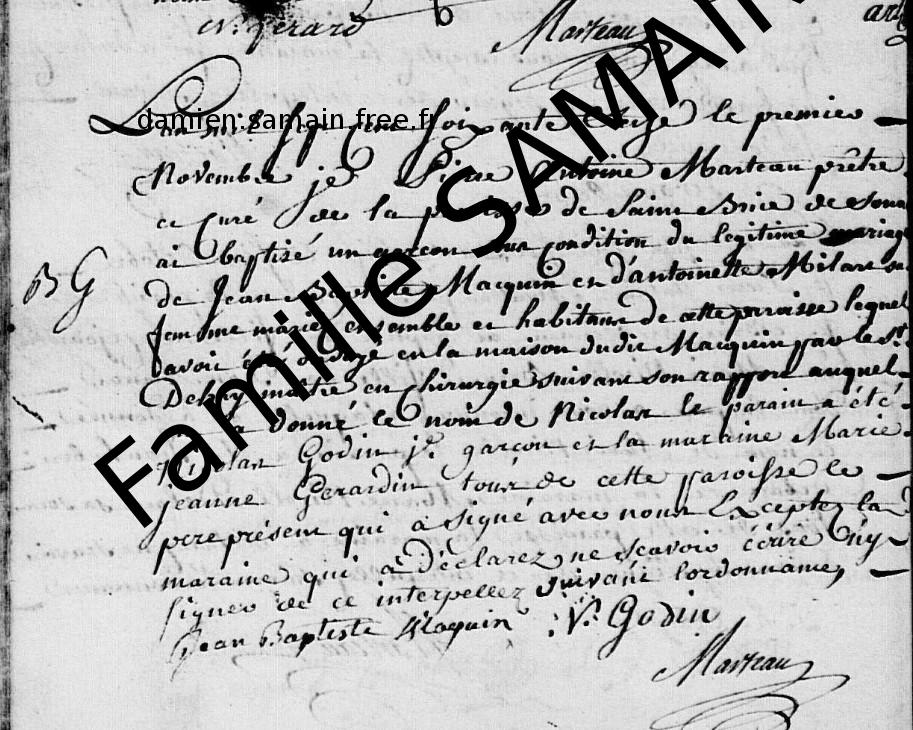 N. Gerard
Marteau
damien.samain.free.fr
Famille SAMAIN
Lan mil Sept Cent Soixante Seize le premier
Novembre je Pierre Antoine Marteau prêtre
ce Curé de la paroisse de Saint Brice de
ai baptisé un garcon sous condition du legitime mariage
BG
de Jean Baptiste Macquin et d'antoinette Milart
femme mariés ensemble et habitans de cette paroisse lequel
avoir été ondoyé en la maison dudit Macquin par le Sr.
maitre en Chirurgie suivant son rapport auquel
a donné le nom de Nicolas le parain a été
Nicolas Godin je. garçon et la maraine Marie
jeanne Gerardin tous de cette paroisse le
pere présent qui a signé avec nous Exceptez la
maraine qui a déclarez ne scavoir écrire ny
signer de ce interpellez suivant lordonnance
Jean Baptiste Maquin N. Godin
Marteau